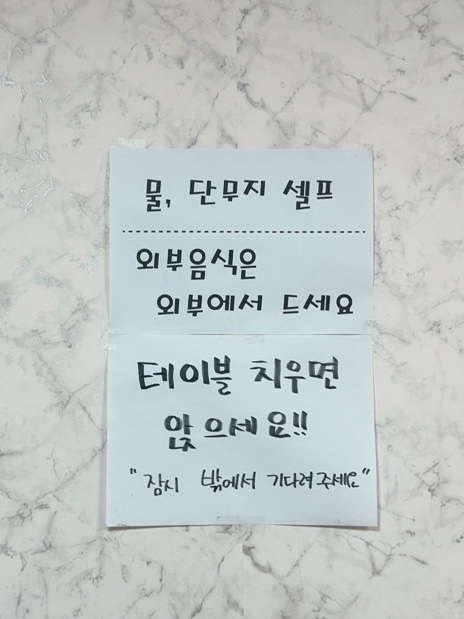 물, 단무지 셀프
외부음식은
외부에서 드세요
테이블 치우면
앉으세요!!
"잠시 밖에서 기다려주세요"